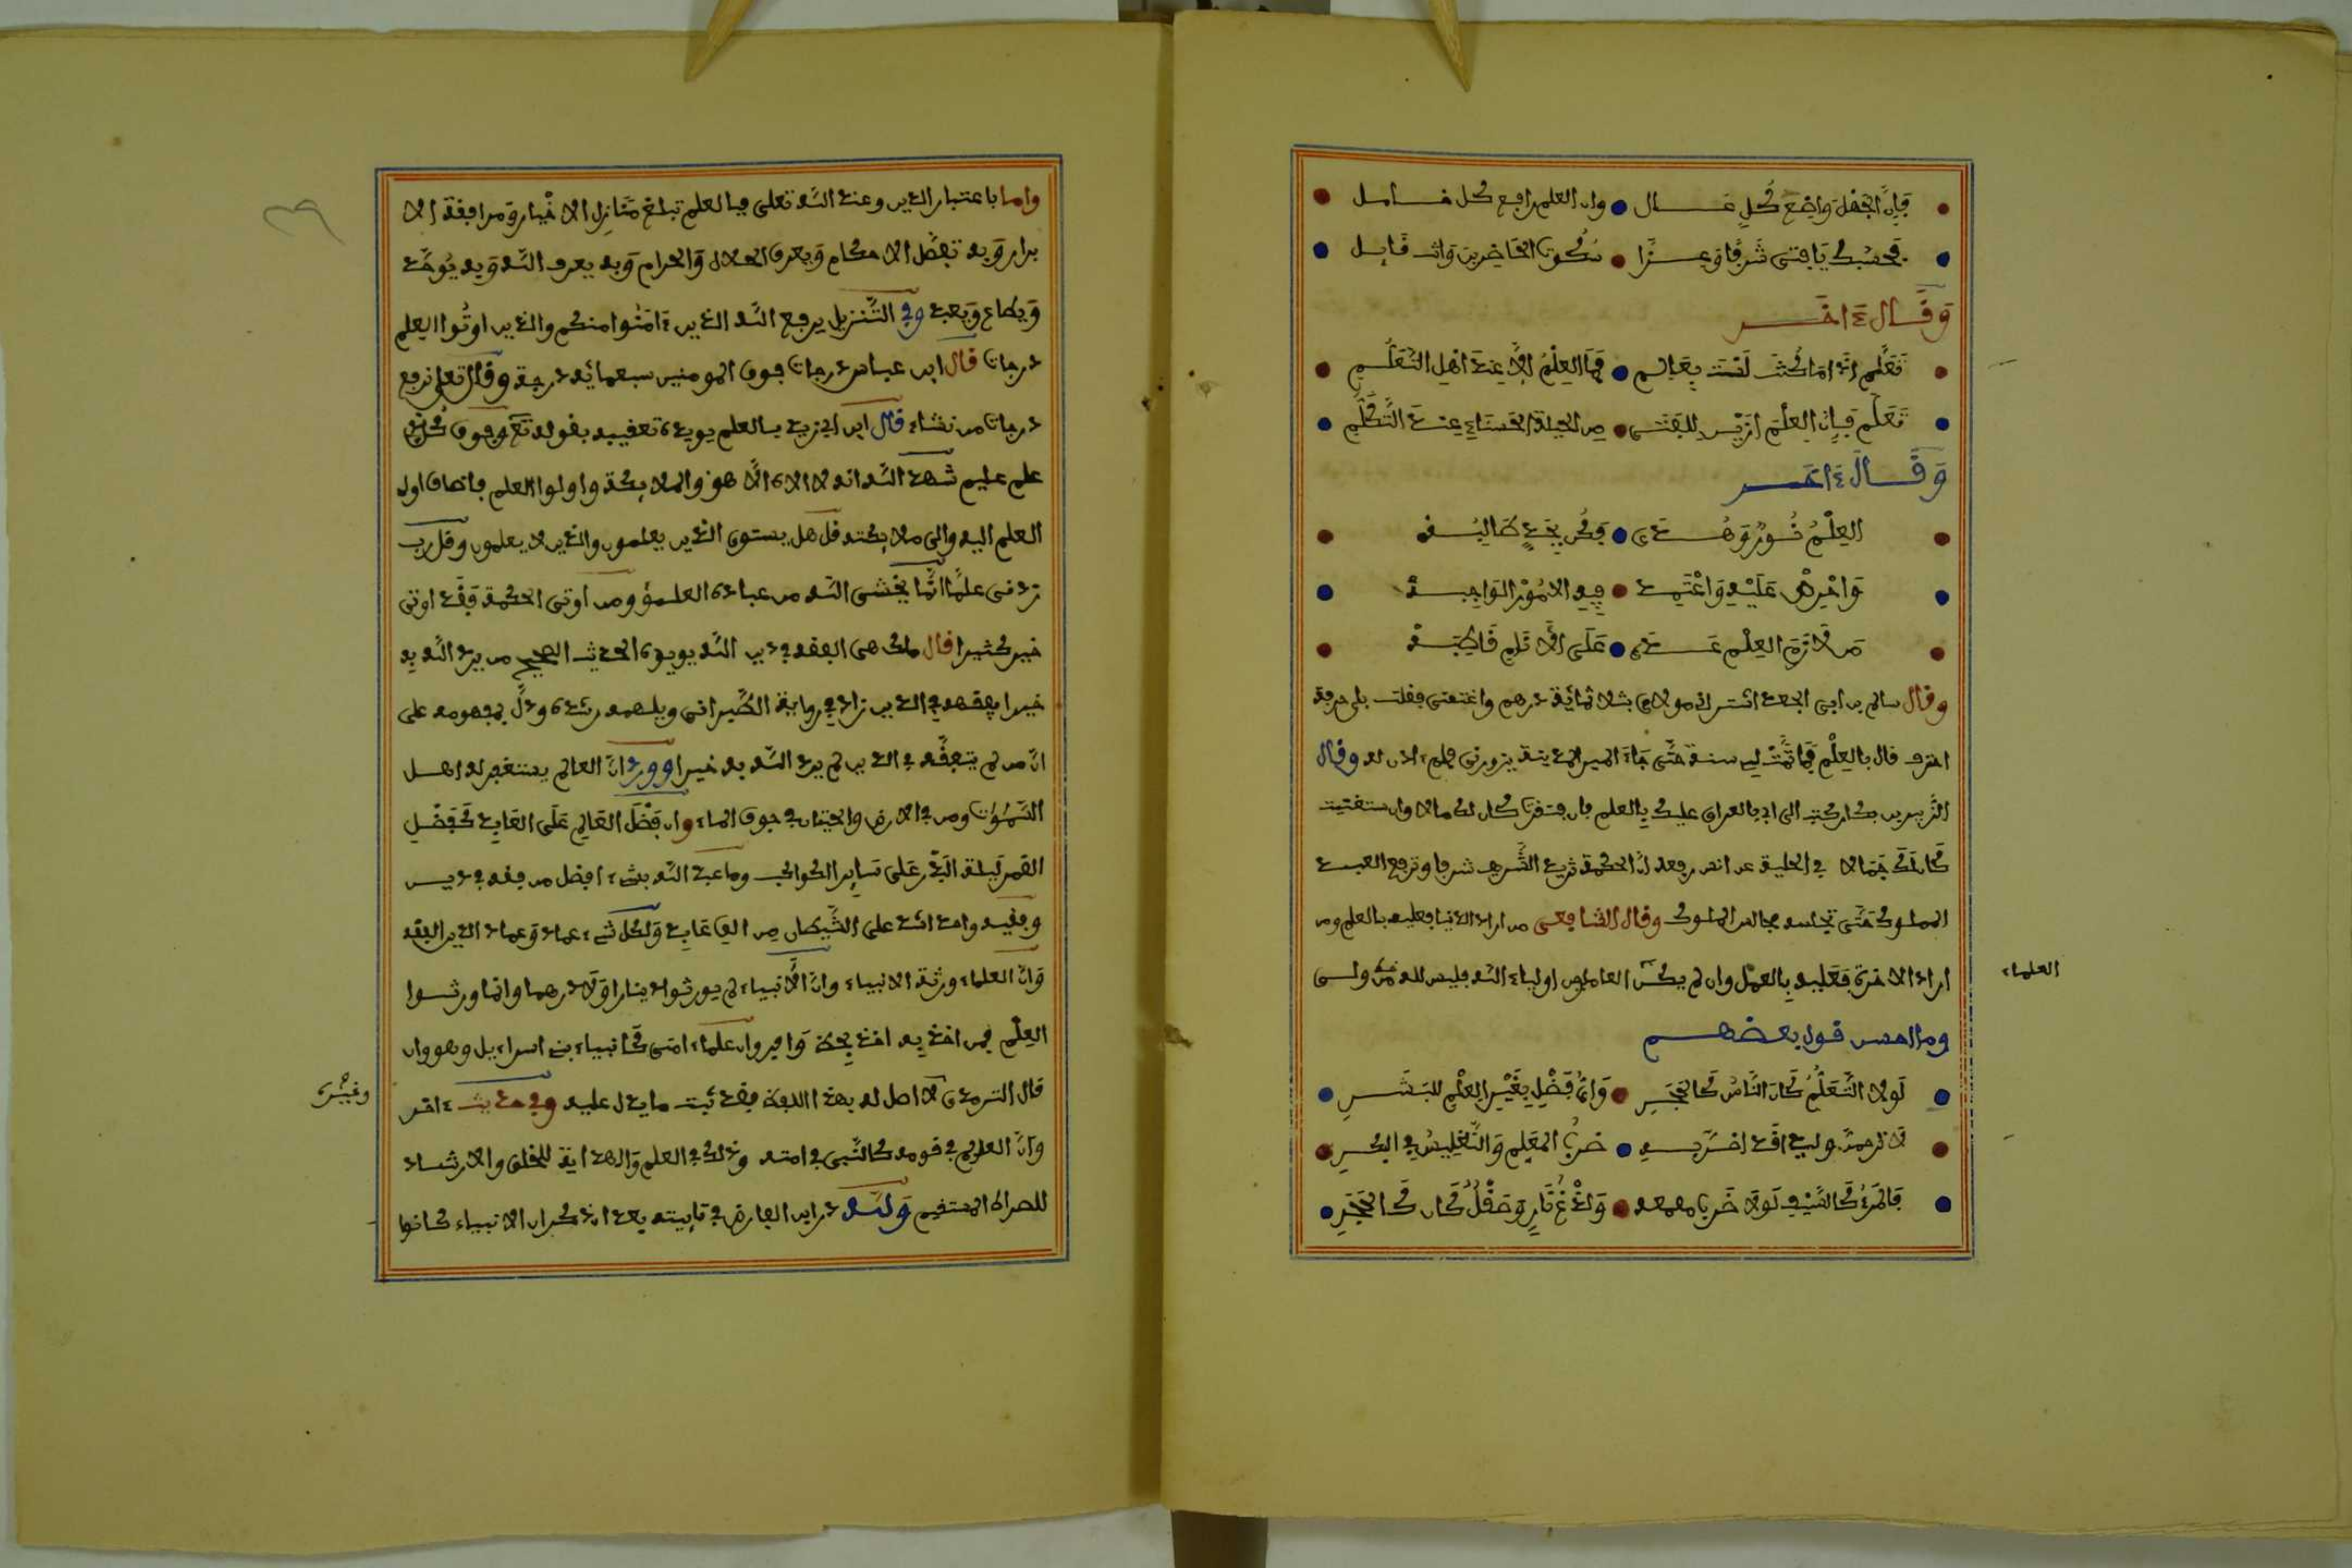 فإن الجهل واضع كل عال وان العلم رافع كل خامل
فحسبك يا فتى شرفا وعزا سكوت الحاضرين وانت قايل
وقال ءاخر
تعلم اذا ما كنت لست بعالم فما العلم إلا عند اهل التعلم
تعلم فإن العلم ازين للفتى من الحلة الحسناء عند التكلم
وقال ءاخر
العلم نور وهدى فكن بجد طالبه
واحرص عليه واعتمد فيه الامور الواجبه
من لازم العلم غدى على الانام قاطبه
وقال سالم بن ابى الجعد اشتراني مولاي بثلاثمائة درهم واعتقنى فقلت باي حرفة
احترف قال بالعلم فما تمت لي سنة حتى جاء امير المدينة يزورنى فلم ءاذن له وقال
الزبير بن بكار كتب الى ابي بالعراق عليك بالعلم فان افتقرت كان لك مالا وان استغنيت
كان لك جمالا في الحلية عن انس رفعه ان الحكمة تزيد الشريف شرفا وترفع العبد
المملوك حتى تجلسه مجالس الملوك وقال الشافعى من اراد الدنيا فعليه بالعلم ومن
اراد الاخرة فعليه بالعمل وان لم يكن العاملون اولياء الله فليس لله من ولى
العلماء
ومن احسن قول بعضهم
لولا التعلم كان الناس كالحجر واي فضل بغير العلم للبشر
لا ترحمن وليدا قد اضر به ضرب المعلم والتغليس في البكر
فالمرء كالسيف لولا ضرب وصقل كان كالحجر
واما باعتبار الدين وعند الله تعلى فبالعلم تبلغ منازل الاخيار ومرافقة الا
برار وبه تفصل الاحكام ويعرف الحلال والحرام وبه يعرف الله وبه يوحد
ويطاع ويعبد وفي التنزيل يرفع الله الذين ءامنوا منكم والذين اوتوا العلم
درجات قال ابن عباس درجات فوق المومنين سبعمائة درجة وقال تعلى نرفع
درجات من نشاء قال ابن ابي زيد بالعلم يويده تعقيبه بقوله تعلى وفوق كل ذي
علم عليم شهد الله انه لا الاه الا هو والملايكة واولوا العلم فاضاف اولى
العلم اليه والى ملايكته قل هل يستوي الذين يعلمون والذين لا يعلمون وقل رب
زدنى علما انما يخشى الله من عباده العلمؤ ومن اوتى الحكمة فقد اوتى
خيرا كثيرا قال مالك هى الفقه في دين الله يويده الحديث الصحيح من يرد الله به
خيرا يفقهه في الدين زاد في رواية الطبرانى ويلهمه رشده ودل بمفهومه على
ان من لم يتفقه في الدين لم يرد الله به خيرا وورد ان العالم يستغفر له اهل
السموت ومن في الارض والحيتان في جوف الماء وان فضل العالم على العابد كفضل
القمر ليلة البدر على ساير الكواكب وما عبد الله بشيء افضل من فقه في دين
وفقيه واحد اشد على الشيطان من الف عابد ولكل شيء عماد وعماد الدين الفقه
وان العلماء ورثة الانبياء وان الانبياء لم يورثوا دينارا ولا درهما وانما ورثوا
العلم فمن اخذ به اخذ بحظ وافر وان علماء امتى كانبياء بنى اسراءيل وهو وان
قال الترمذي لا اصل له بهذا اللفظ فقد ثبت ما يدل عليه وفي حديث ءاخر
وغيره
وان العالم في قومه كالنبى في امته وذلك في العلم والهداية للخلق والارشاد
للصراط المستقيم ولله در ابن الفارض في تايته بعد ان ذكر ان الانبياء كانوا